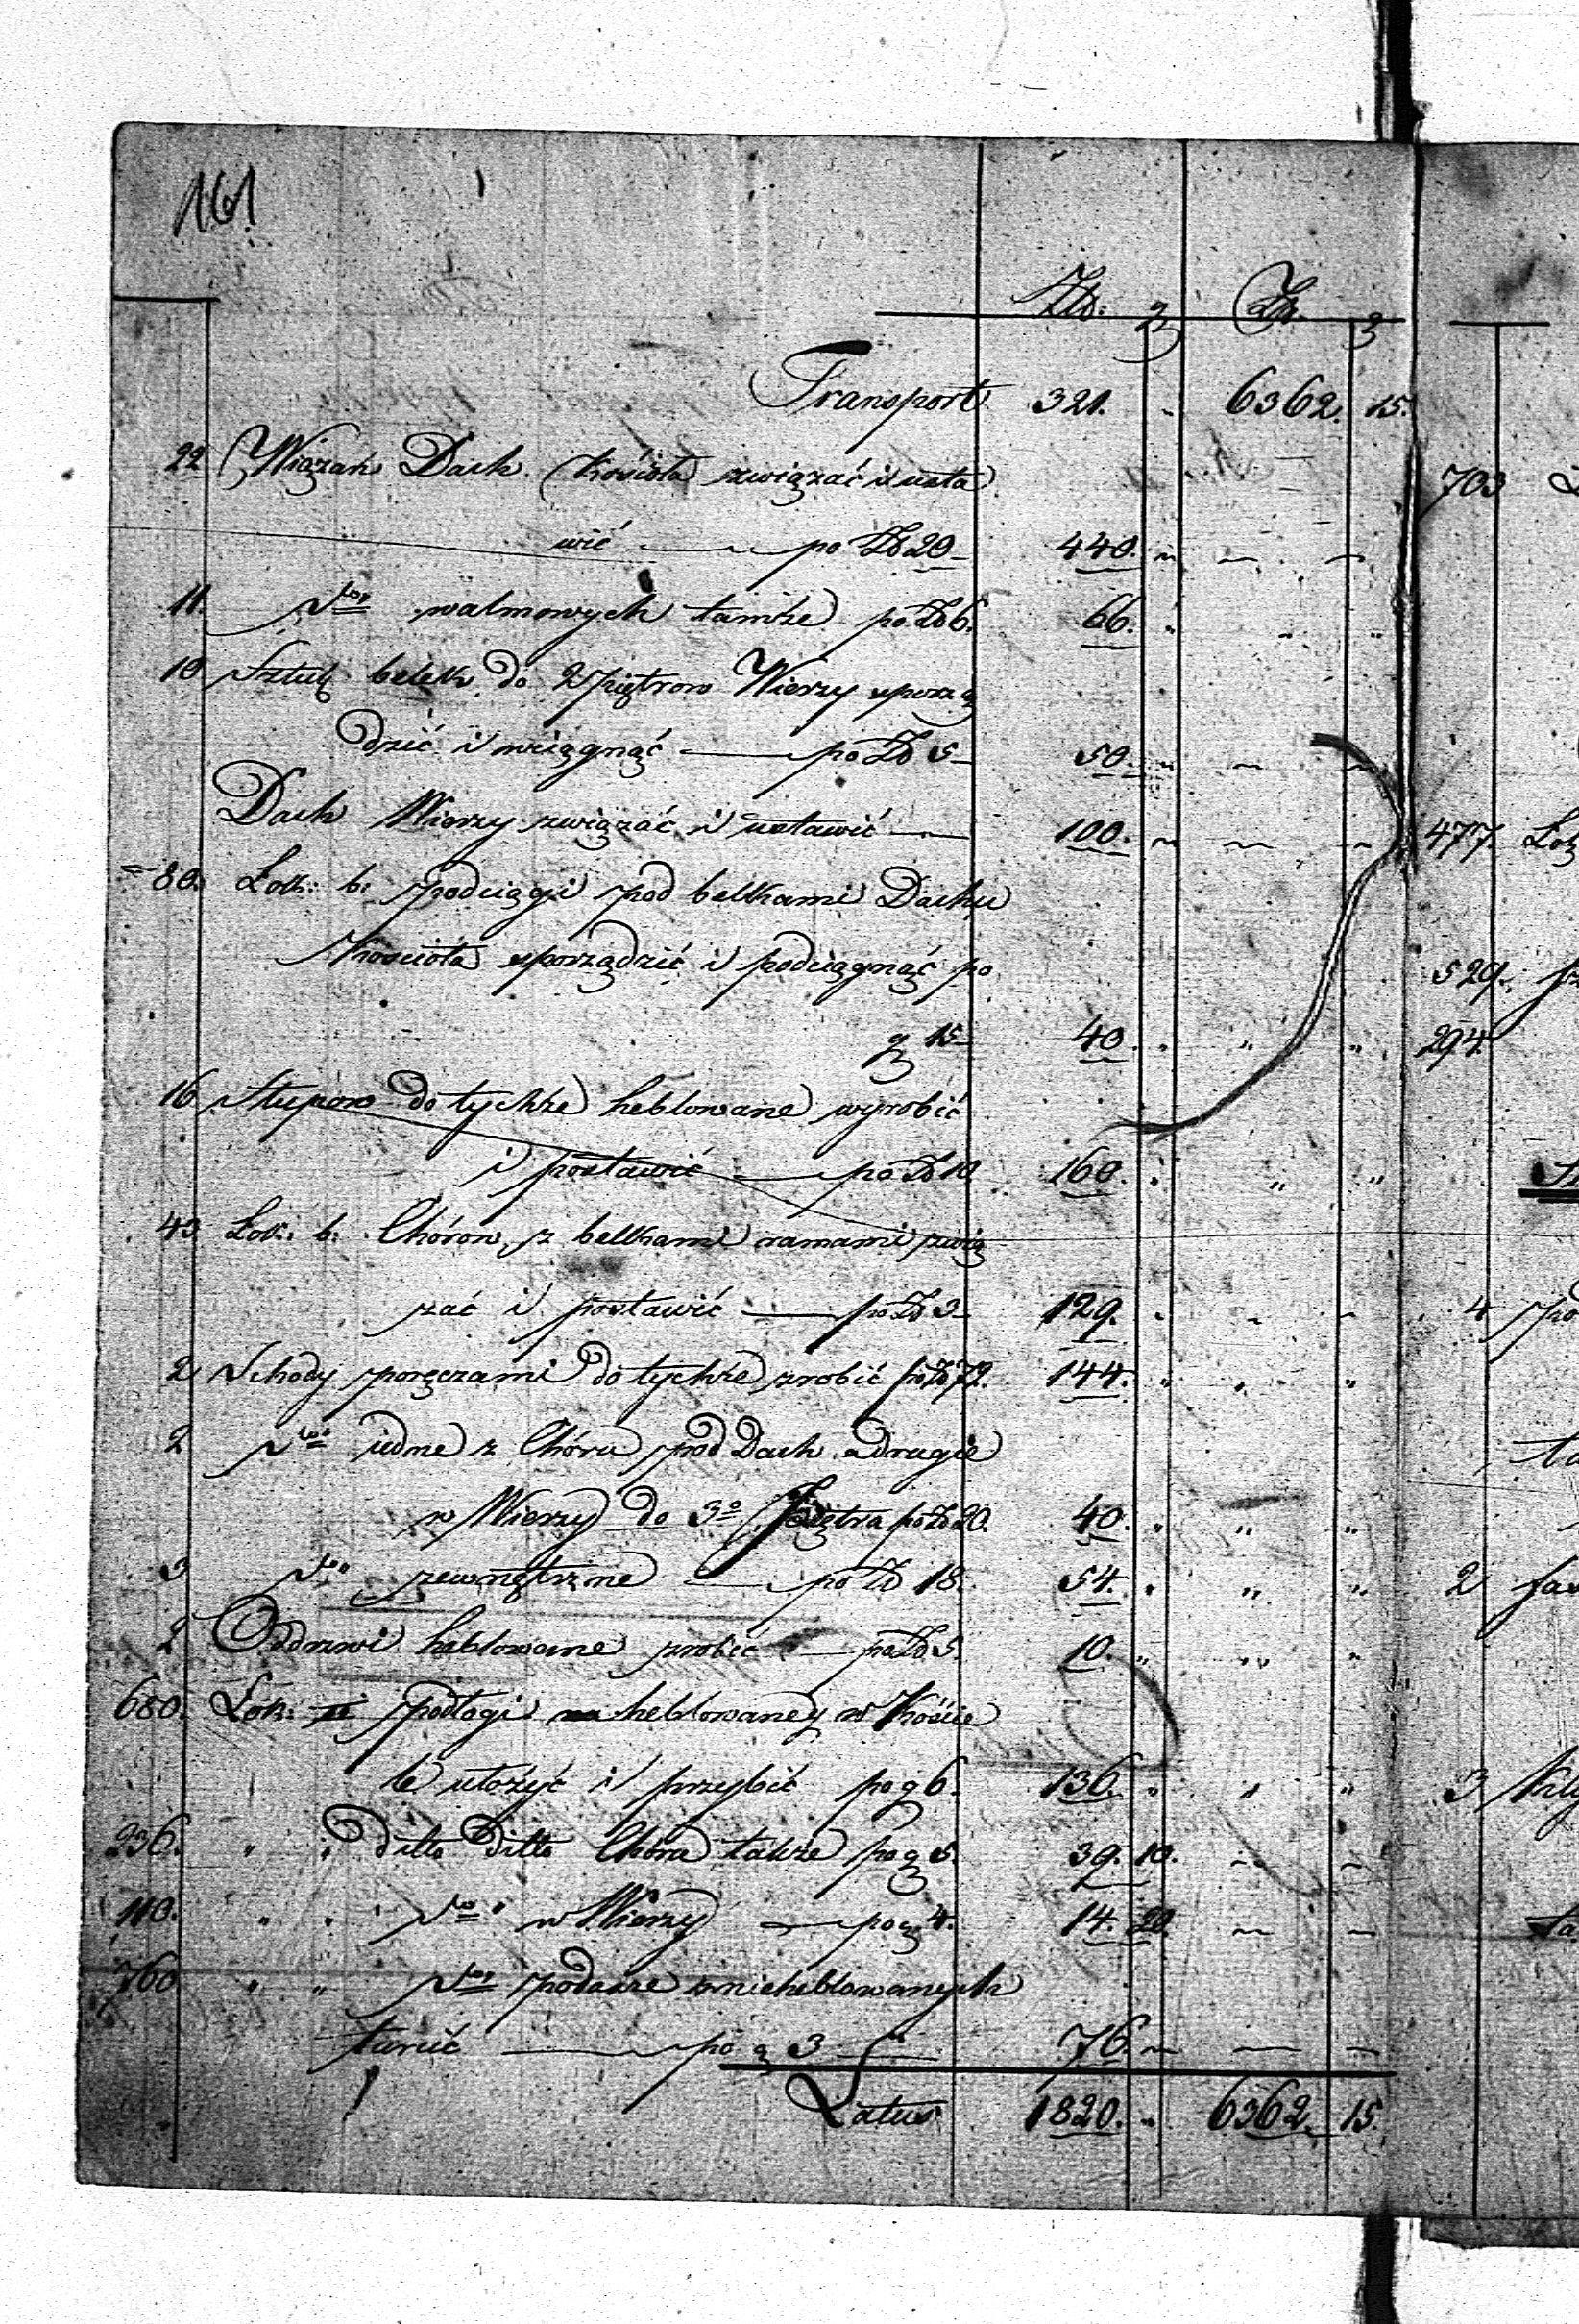 161
Złt: g Zł. g
Transport 321. " 6362. 15.
22 Wiązań Dach Kościoła związać i usta
wić — po Zł 20 — 440. — — —
11. dto walmowych tamże po Zł 6. 66. " " "
10 Sztuk belek do 2 piętrow Wierzy uporzą
dzić i wciągnąć — po Zł 5 — 50. — — —
Dach Wierzy związać i ustawić — 100. — — —
80. Łok: b: podciągi pod belkami Dachu
Kościoła uporządzić i podciągnąć po
g 15 — 40. " " "
16 Słupow do tychże heblowane wyrobić
i postawić — po Zł 10 160. " " "
43 Łok: b: Chórow z belkami ramami zwią
zać i postawić — po Zł 3 — 129. " " "
2 Schody poręczami do tychże zrobić po Zł 72. 144. " " "
2 dto iedne z Chóru pod Dach a drugie
w Wierzy do 3o Piętra po Zł 20. 40. " " "
3 dto zewnętrzne — po Zł 18. 54. " " "
2 Oddrzwi heblowane zrobić — po Zł 5. 10. " " "
680. Łok: podłogi heblowaney w Koście
le ułożyć i przybić po g 6. 136. " " "
236. " " Ditto Ditto Chóra także po g 5. 39. 10. — —
110. " " dto w Wierzy — po g 4. 14. 20. — —
760 " " dto podasze nieheblowanych
— po g 3 — 76. — — —
Latus 1820. " 6362. 15.
703
477. Łok
529.
294.
4
2
3